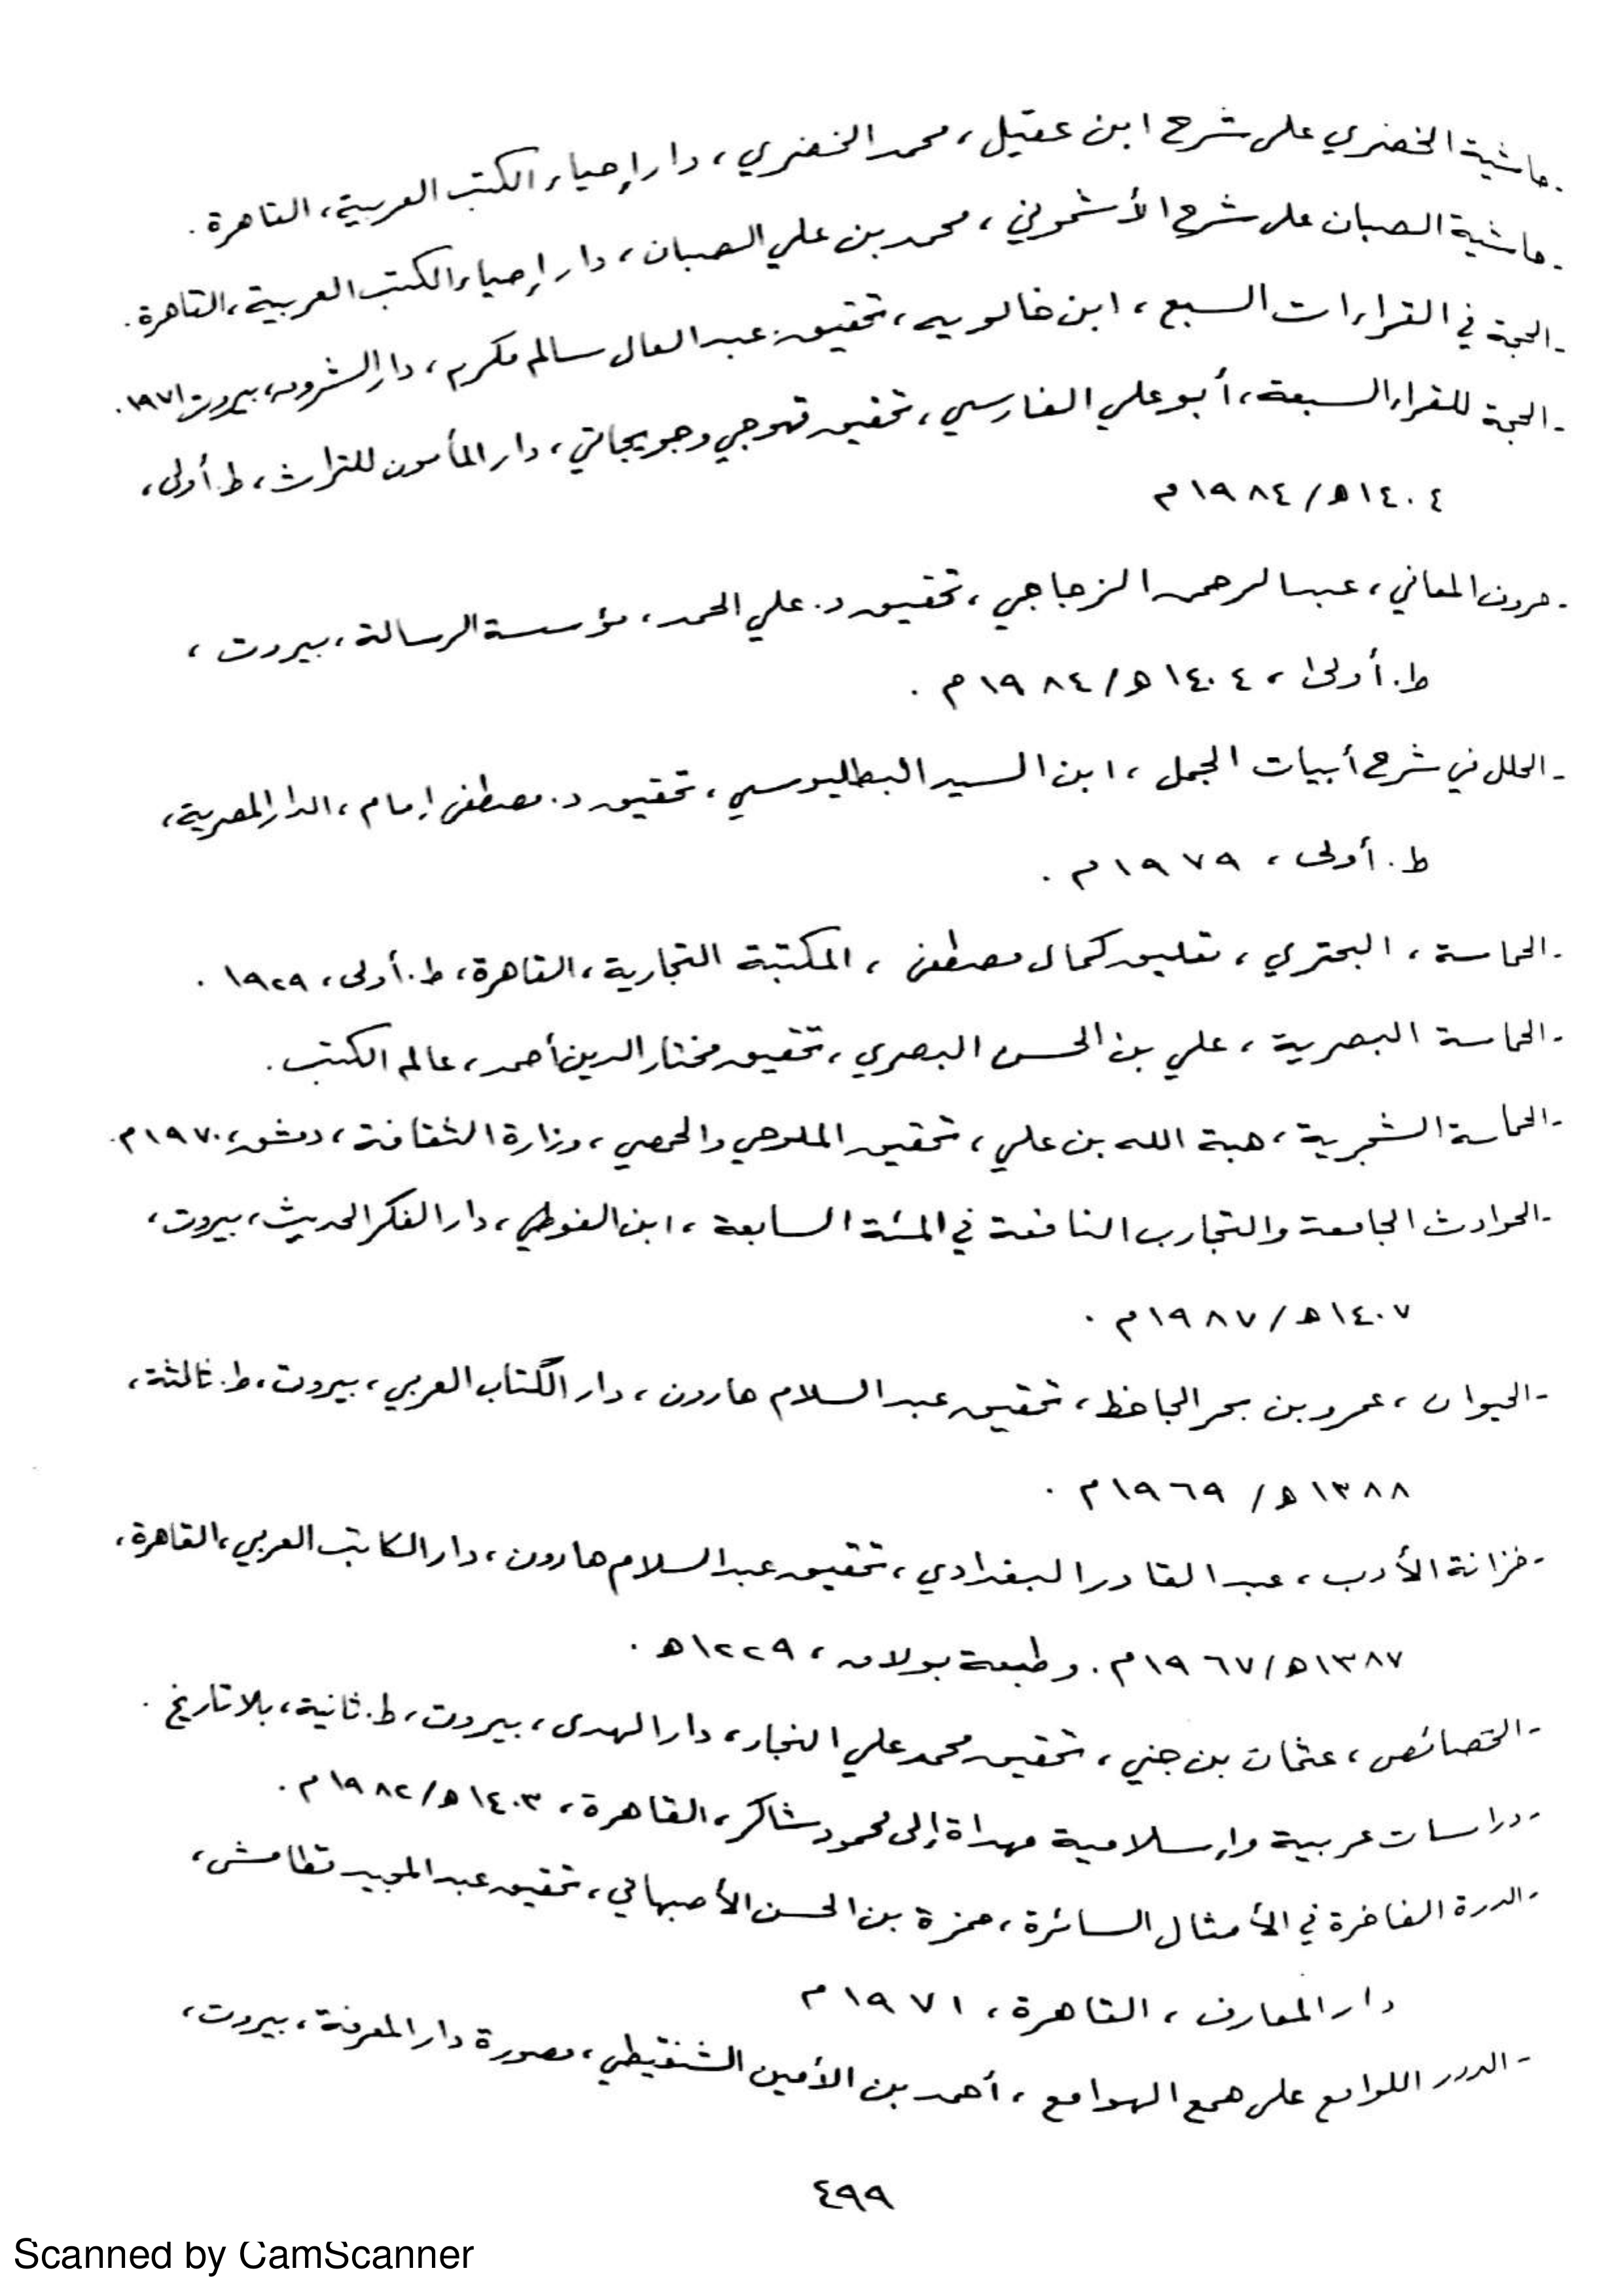 - حاشية الخضري على شرح ابن عقيل ، محمد الخضري ، دار إحياء الكتب العربية ، القاهرة .
- حاشية الصبان على شرح الأشموني ، محمد بن علي الصبان ، دار إحياء الكتب العربية ، القاهرة .
- الحجة في القراءات السبع ، ابن خالويه ، تحقيق عبد العال سالم مكرم ، دار الشروق ، بيروت ١٩٧١ .
- الحجة للقراء السبعة ، أبو علي الفارسي ، تحقيق قهوجي وجويجاتي ، دار المأمون للتراث ، ط . أولى ،
١٤٠٤هـ / ١٩٨٤م
- حروف المعاني ، عبد الرحمن الزجاجي ، تحقيق د . علي الحمد ، مؤسسة الرسالة ، بيروت ،
ط . أولى ، ١٤٠٤هـ / ١٩٨٤م .
- الحلل في شرح أبيات الجمل ، ابن السيد البطليوسي ، تحقيق د . مصطفى إمام ، الدار المصرية ،
ط . أولى ، ١٩٧٩م .
- الحماسة ، البحتري ، تعليق كمال مصطفى ، المكتبة التجارية ، القاهرة ، ط . أولى ، ١٩٢٩ .
- الحماسة البصرية ، علي بن الحسن البصري ، تحقيق مختار الدين أحمد ، عالم الكتب .
- الحماسة الشجرية ، هبة الله بن علي ، تحقيق الملوحي والحمصي ، وزارة الثقافة ، دمشق ، ١٩٧٠م .
- الحوادث الجامعة والتجارب النافعة في المئة السابعة ، ابن الفوطي ، دار الفكر الحديث ، بيروت ،
١٤٠٧هـ / ١٩٨٧م .
- الحيوان ، عمرو بن بحر الجاحظ ، تحقيق عبد السلام هارون ، دار الكتاب العربي ، بيروت ، ط . ثالثة ،
١٣٨٨هـ / ١٩٦٩م .
- خزانة الأدب ، عبد القادر البغدادي ، تحقيق عبد السلام هارون ، دار الكاتب العربي ، القاهرة ،
١٣٨٧هـ / ١٩٦٧م . وطبعة بولاق ، ١٢٢٩هـ .
- الخصائص ، عثمان بن جني ، تحقيق محمد علي النجار ، دار الهدى ، بيروت ، ط . ثانية ، بلا تاريخ .
- دراسات عربية وإسلامية مهداة إلى محمود شاكر ، القاهرة ، ١٤٠٣هـ / ١٩٨٢م .
- الدرة الفاخرة في الأمثال السائرة ، حمزة بن الحسن الأصبهاني ، تحقيق عبد المجيد قطامش ،
دار المعارف ، القاهرة ، ١٩٧١م
- الدرر اللوامع على همع الهوامع ، أحمد بن الأمين الشنقيطي ، مصورة دار المعرفة ، بيروت ،
٤٩٩
Scanned by CamScanner